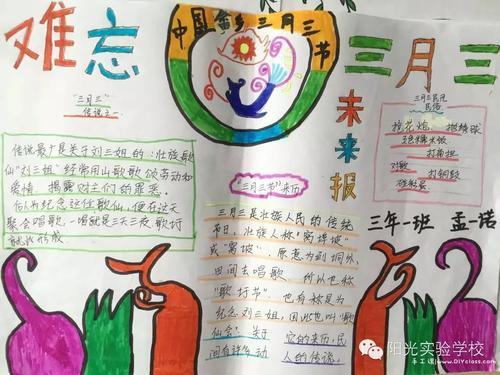 难忘
中国壮乡三月三节
三月三
未来报
"三月三"
传说之一
传说最广是关于刘三姐的:壮族歌
仙"刘三姐"经常用山歌歌颂劳动和
爱情,揭露财主们的罪恶。
后人为纪念这位歌仙,便在这天
聚会唱歌,一唱就是三天三夜,歌圩
就此形成
"三月三节"来历
三月三是壮族人民的传统
节日,壮族人称"窝埠坡"
或"窝坡",原意为到垌外、
田间去唱歌,所以也称
"歌圩节",也有称是为
纪念刘三姐,因此也叫"歌
仙会",关于它的来历,民
间有许多动人的传说。
三月三民风
民俗
抢花炮、抛绣球
五色糯米饭
打扁担
对歌 打铜鼓
碰彩蛋
三年一班 孟一诺
阳光实验学校
手工课www.DIYclass.com